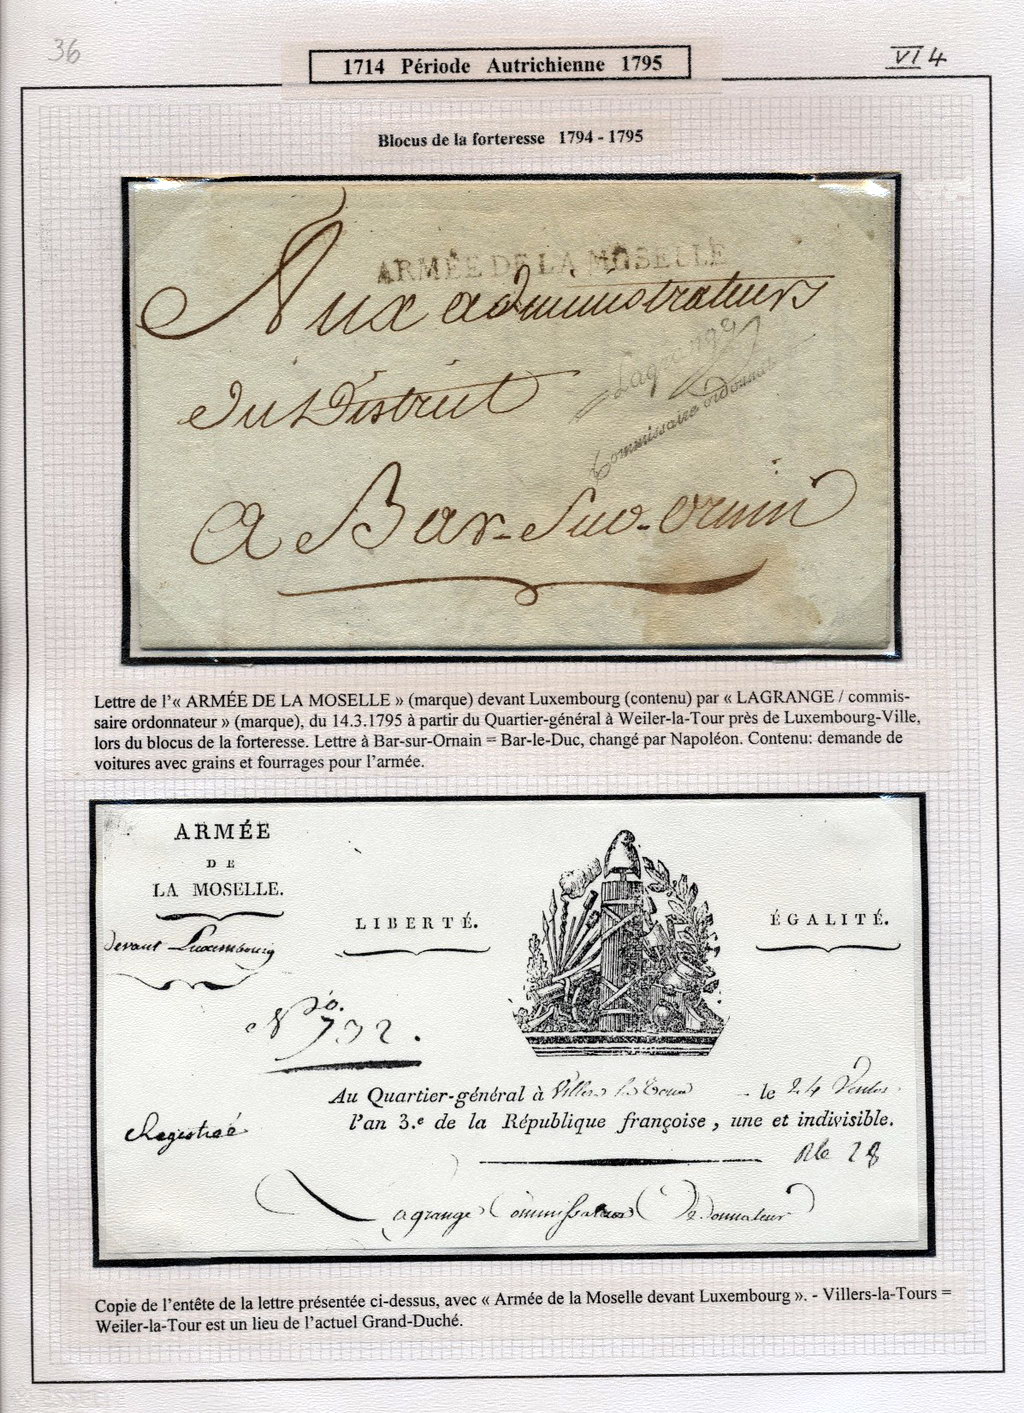 36
1714 Période Autrichienne 1795
VI 4
Blocus de la forteresse 1794 - 1795
ARMÉE DE LA MOSELLE
Aux administrateurs
Lagrange
du District
Commissaire ordonnateur
a Bar-Sur-ornin
Lettre de l'« ARMÉE DE LA MOSELLE » (marque) devant Luxembourg (contenu) par « LAGRANGE / commis-
saire ordonnateur » (marque), du 14.3.1795 à partir du Quartier-général à Weiler-la-Tour près de Luxembourg-Ville,
lors du blocus de la forteresse. Lettre à Bar-sur-Ornain = Bar-le-Duc, changé par Napoléon. Contenu: demande de
voitures avec grains et fourrages pour l'armée.
ARMÉE
DE
LA MOSELLE.
LIBERTÉ.
ÉGALITÉ.
devant Luxembourg
N.º 732.
Au Quartier-général à Villers la Tour - le 24 Ventos
l'an 3.e de la République françoise, une et indivisible.
Registré
Rle 28
Lagrange Commissaire Ordonnateur
Copie de l'entête de la lettre présentée ci-dessus, avec « Armée de la Moselle devant Luxembourg ». - Villers-la-Tours =
Weiler-la-Tour est un lieu de l'actuel Grand-Duché.